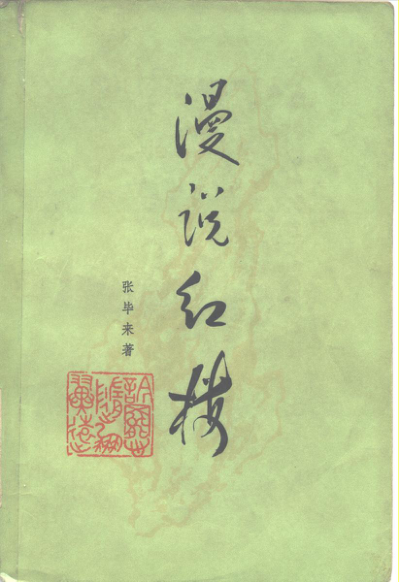 漫说红楼
张毕来著